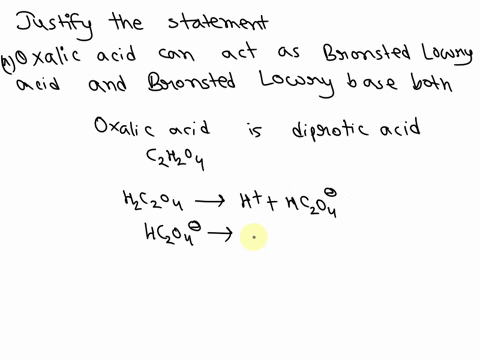 Justify the statement
(a) Oxalic acid can act as Bronsted Lowry
acid and Bronsted Lowry base both
Oxalic acid is diprotic acid
C₂H₂O₄
H₂C₂O₄ → H⁺ + HC₂O₄⊖
HC₂O₄⊖ →